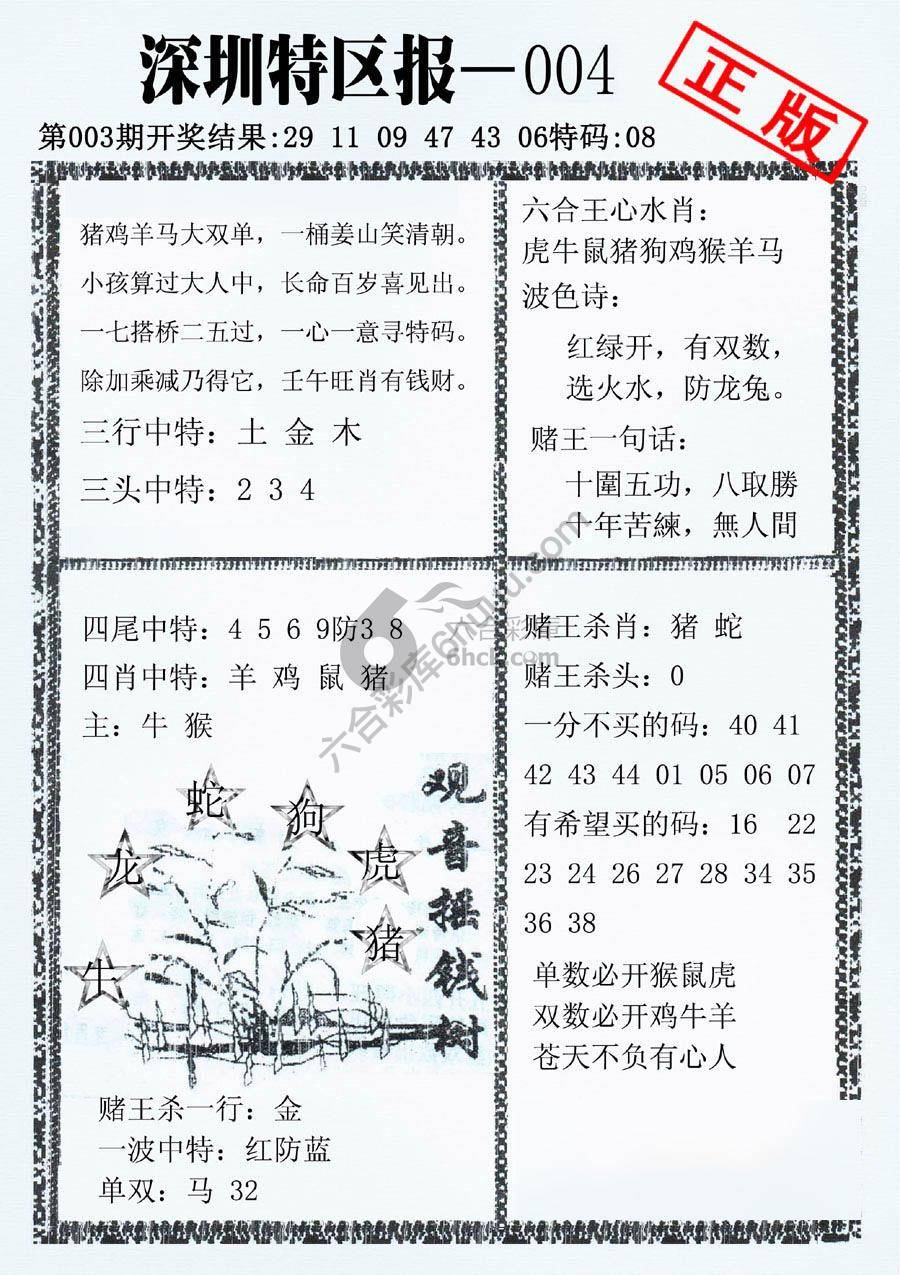 深圳特区报—004
正版
第003期开奖结果:29 11 09 47 43 06特码:08
猪鸡羊马大双单，一桶姜山笑清朝。
小孩算过大人中，长命百岁喜见出。
一七搭桥二五过，一心一意寻特码。
除加乘减乃得它，壬午旺肖有钱财。
三行中特：土 金 木
三头中特：2 3 4
六合王心水肖：
虎牛鼠猪狗鸡猴羊马
波色诗：
红绿开，有双数，
选火水，防龙兔。
赌王一句话：
十圍五功，八取勝
十年苦練，無人間
四尾中特：4 5 6 9防3 8
四肖中特：羊 鸡 鼠 猪
主：牛 猴
蛇
狗
龙
虎
牛
猪
观音摇钱树
赌王杀一行：金
一波中特：红防蓝
单双：马 32
赌王杀肖：猪 蛇
赌王杀头：0
一分不买的码：40 41
42 43 44 01 05 06 07
有希望买的码：16 22
23 24 26 27 28 34 35
36 38
单数必开猴鼠虎
双数必开鸡牛羊
苍天不负有心人
六合彩库6hutu.com
六合彩库
6hck.com